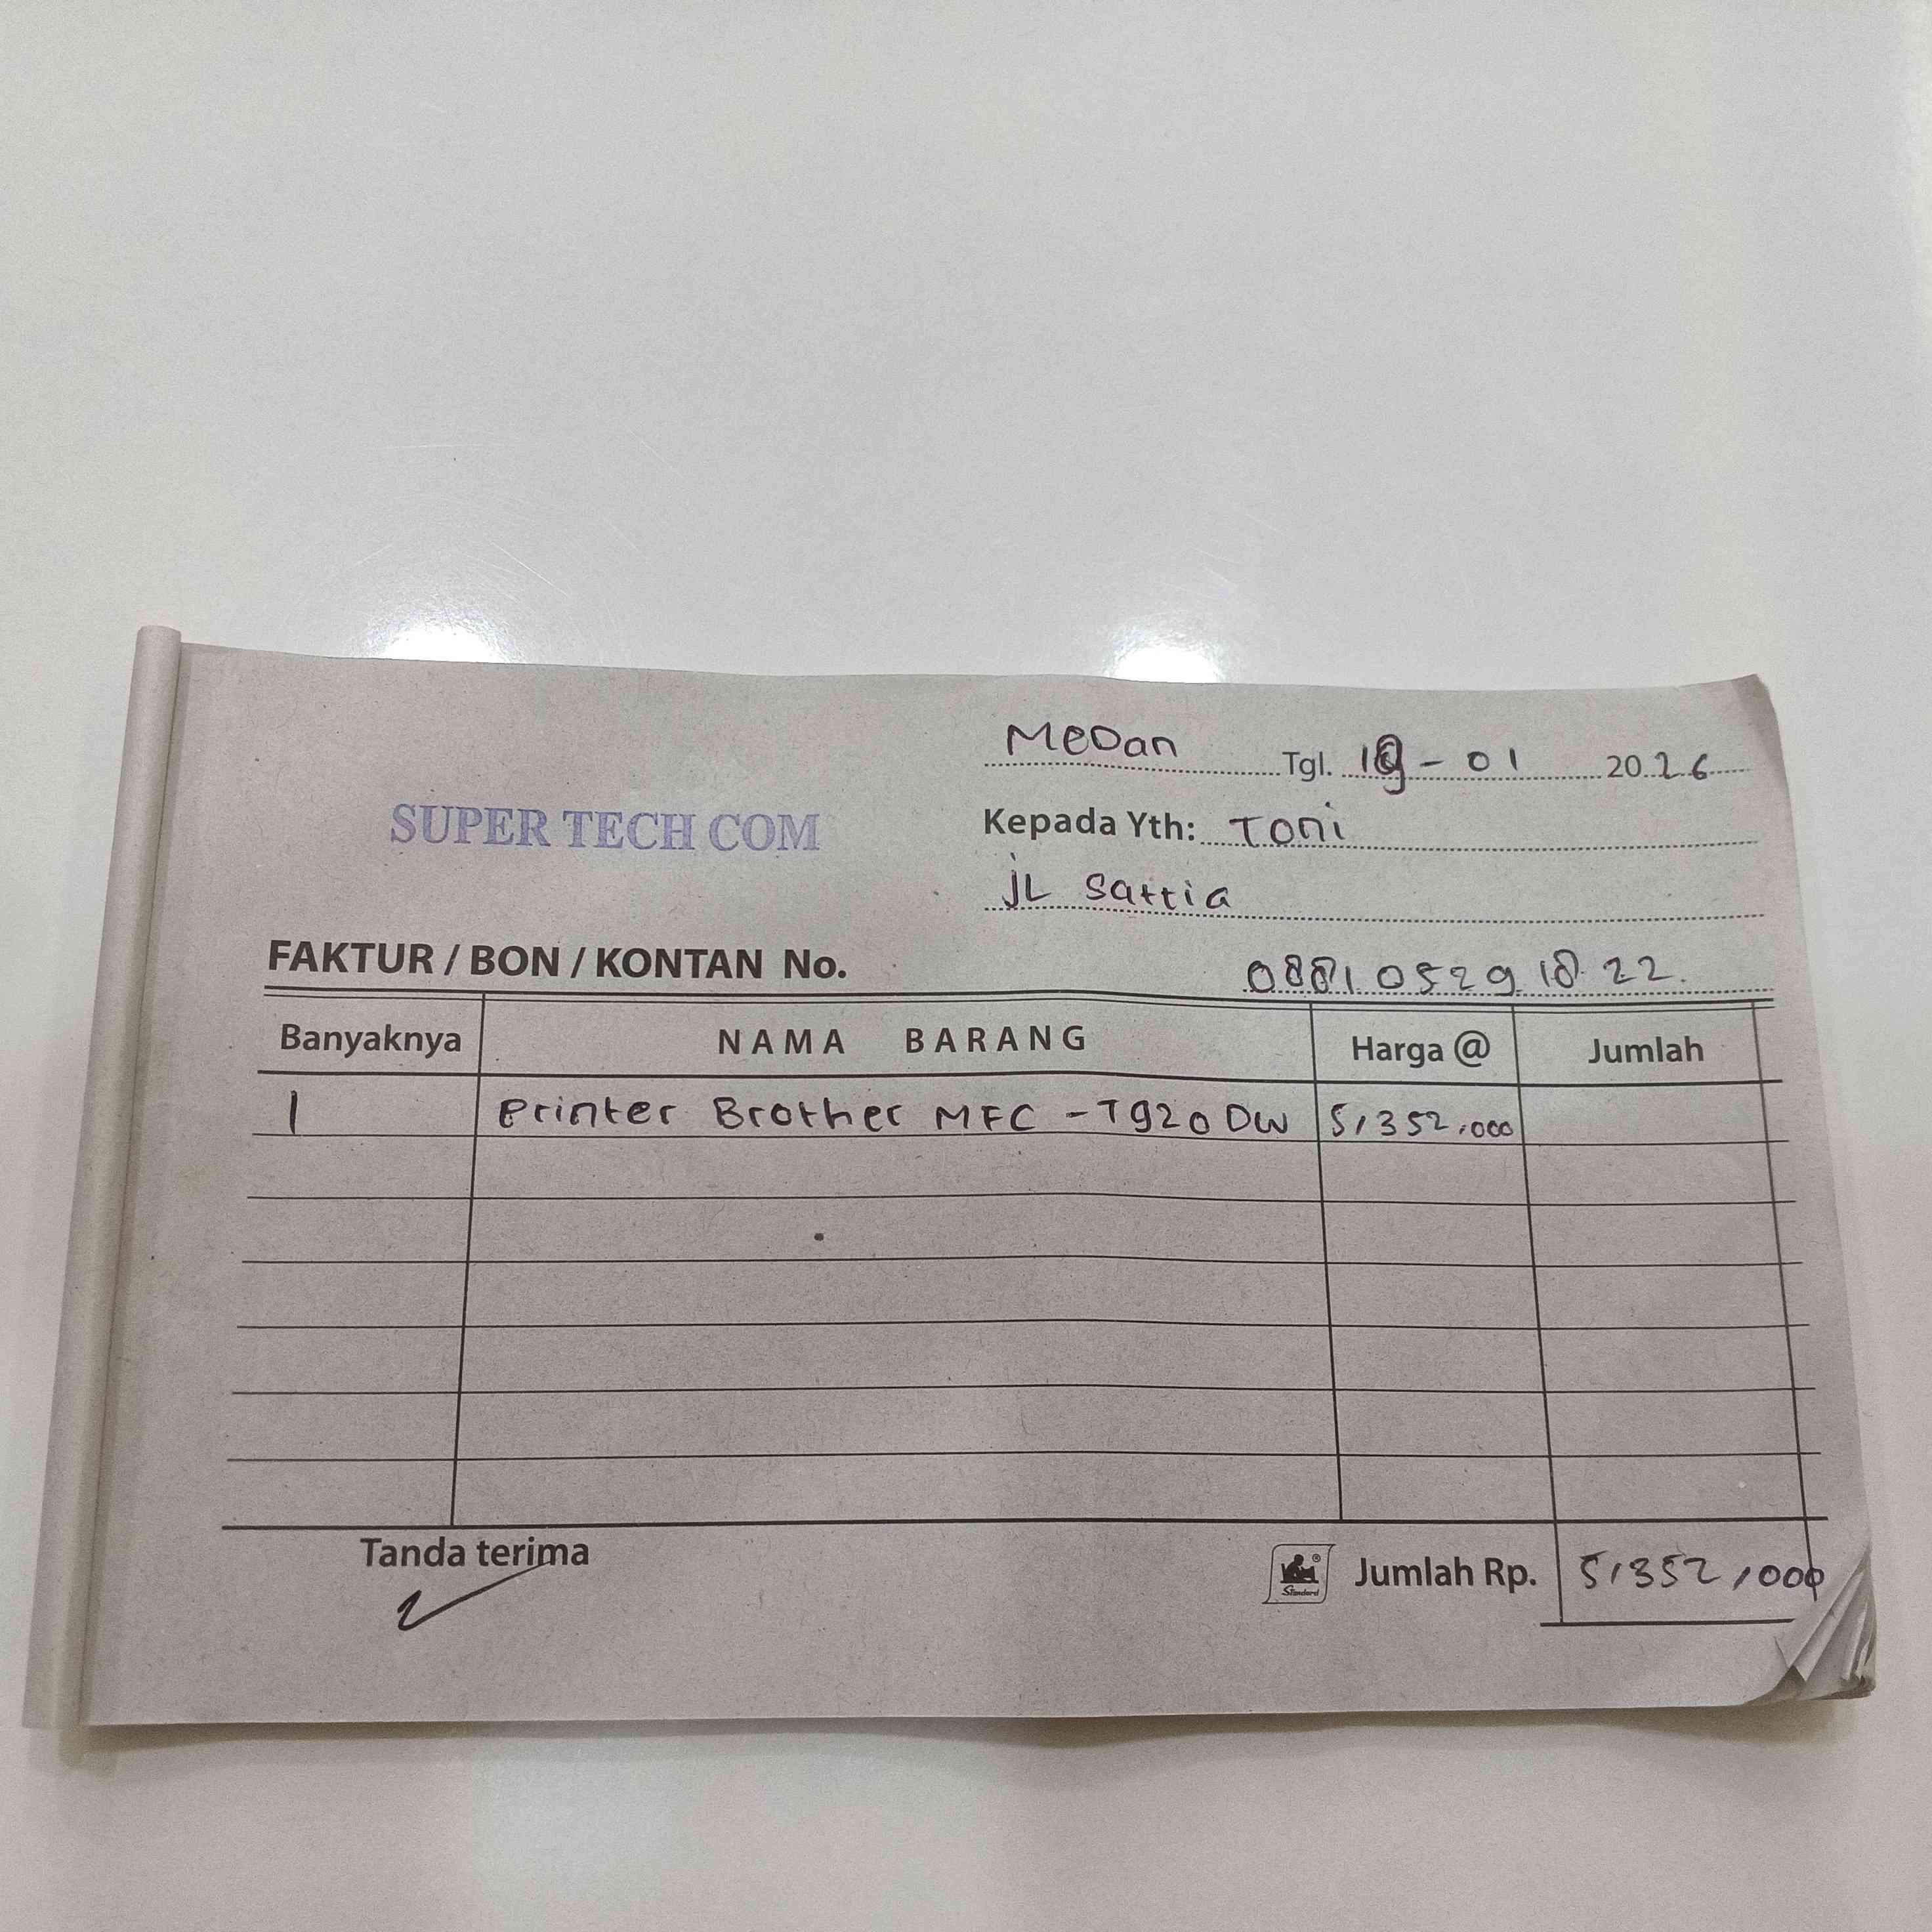 MeDan Tgl. 19 - 01 2026
SUPER TECH COM
Kepada Yth: Toni
jL Sattia
FAKTUR / BON / KONTAN No.
088105291822.
Banyaknya NAMA BARANG Harga @ Jumlah
1 Printer Brother MFC - T920 DW 5,352,000
Tanda terima
Standard
Jumlah Rp. 5,352,000